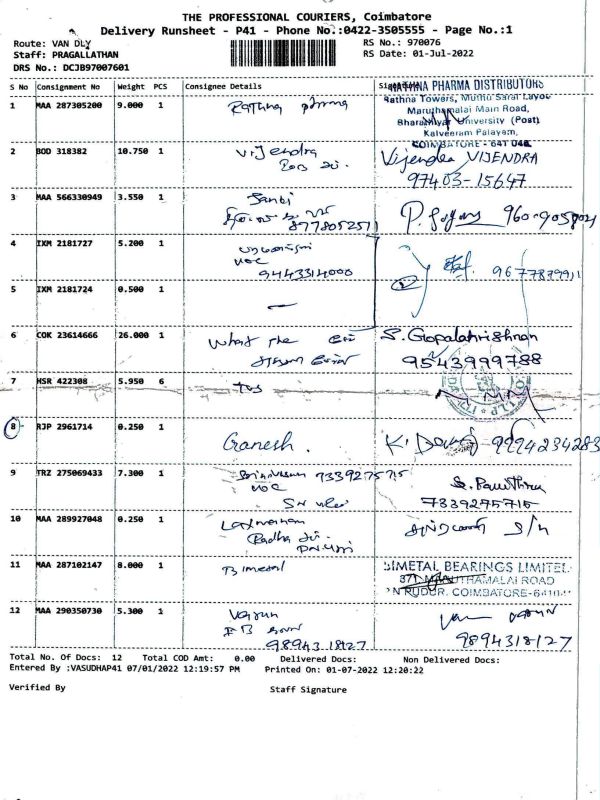 THE PROFESSIONAL COURIERS, Coimbatore
Delivery Runsheet - P41 - Phone No.:0422-3505555 - Page No.:1
Route: VAN DLY
RS No.: 970076
Staff: PRAGALLATHAN
RS Date: 01-Jul-2022
DRS No.: DCJB97007601
S No Consignment No Weight PCS Consignee Details
1 MAA 287305200 9.000 1 Rathna pharma
RATHNA PHARMA DISTRIBUTORS
Rathna Towers, Muthu Sarat Layout
Maruthamalai Main Road,
Bharathiyar University (Post)
Kalveeram Palayam,
COIMBATORE - 641 046
2 BOD 318382 10.750 1 Vijendra
Vijendra VIJENDRA
97403-15647
3 MAA 566330949 3.550 1
8778052511
4 IXM 2181727 5.200 1
VOC
9443314000
9677879911
5 IXM 2181724 0.500 1 —
6 COK 23614666 26.000 1 What the
S. Gopalakrishnan
9543999788
7 HSR 422308 5.950 6 TVS
8 RJP 2961714 0.250 1 Ganesh.
9994234283
9 TRZ 275069433 7.300 1 Srinivasan 7339275715
VOC
7339275715
10 MAA 289927048 0.250 1
Radha
11 MAA 287102147 8.000 1 Bimetal
BIMETAL BEARINGS LIMITED
371 MARUTHAMALAI ROAD
COIMBATORE-641041
12 MAA 290350730 5.300 1 Varun
9894318127
9894318127
Total No. Of Docs: 12 Total COD Amt: 0.00 Delivered Docs: Non Delivered Docs:
Entered By :VASUDHAP41 07/01/2022 12:19:57 PM Printed On: 01-07-2022 12:20:22
Verified By Staff Signature